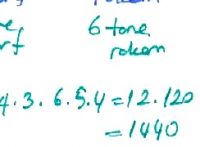 6 tane
rakam
4.3.6.5.4=12.120
=1440